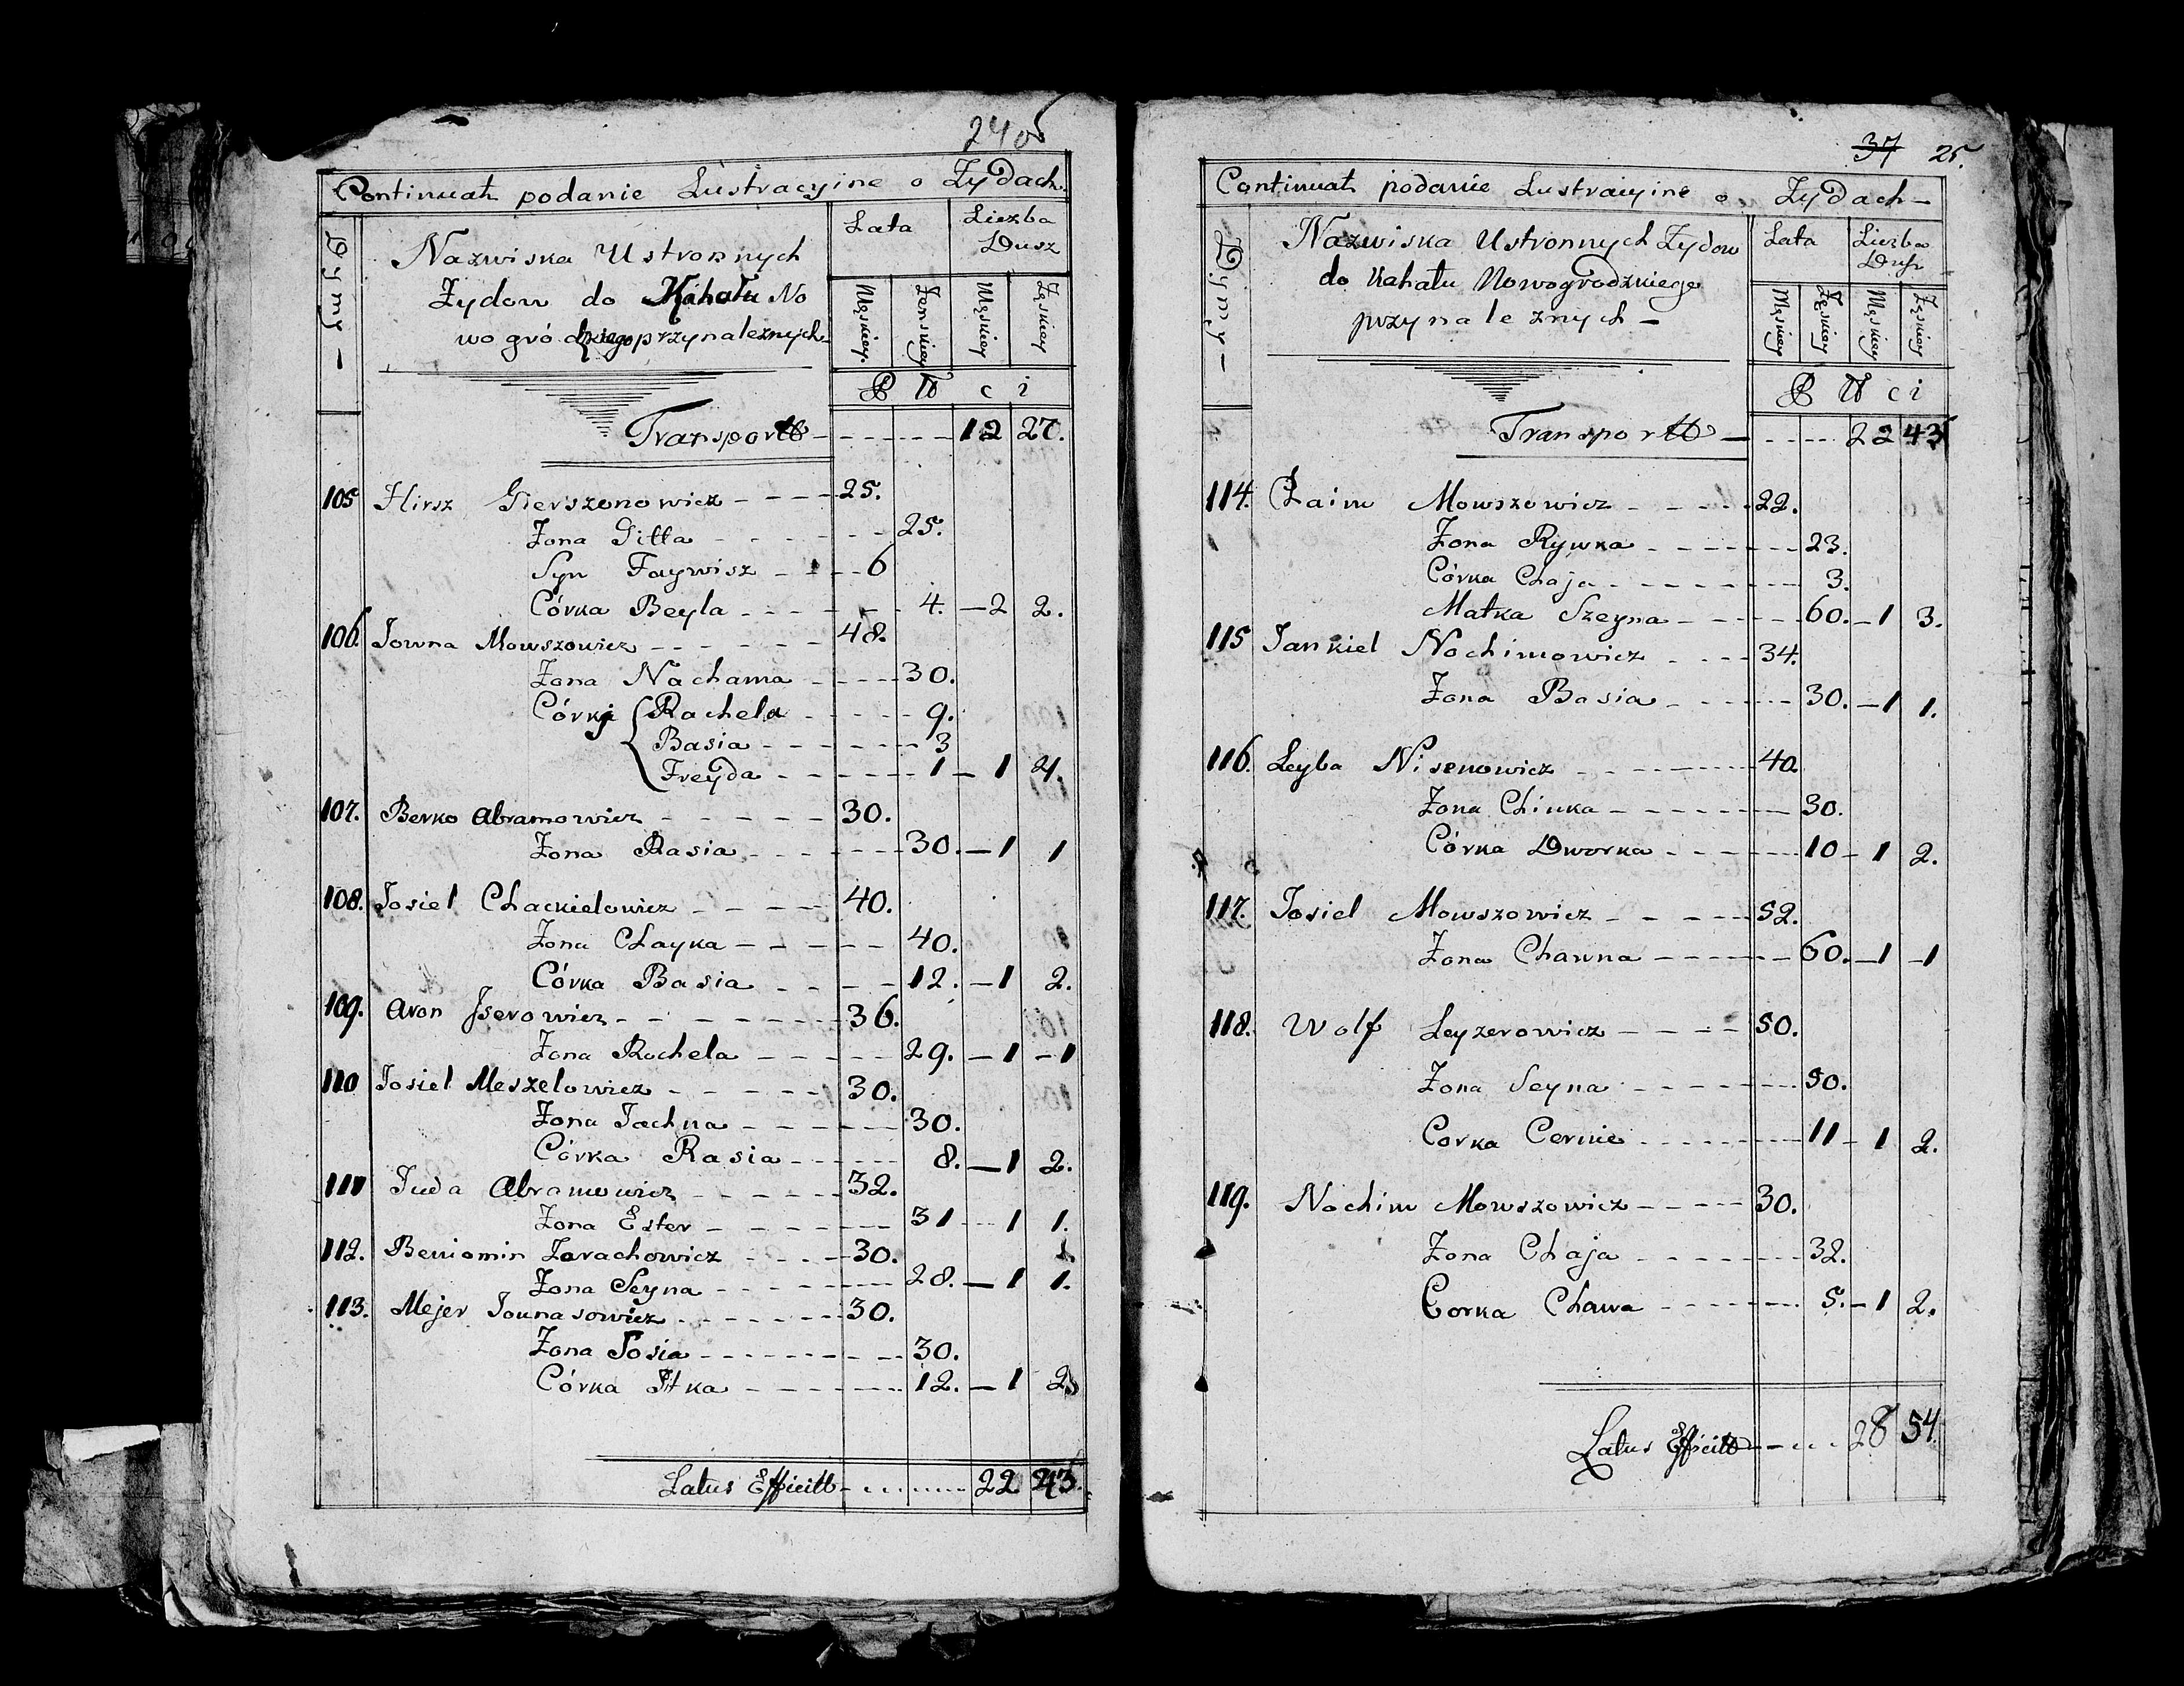 240
Continuatt podanie Lustracyine o Żydach
Dymy
Nazwiska Ustronnych
Żydow do Kahału No
wogródzkiego przynaleznych
Lata
Liczba
Dusz
Męskiey
Żenskiey
Męskiey
Żęskiey
P ł c i
Transportt 12 27.
105 Hirsz Gierszonowicz 25.
Żona Gitta 25.
Syn Faywisz 6
Córka Beyla 4. 2 2.
106. Jowna Mowszowicz 48.
Żona Nachama 30.
Córki Rachela 9.
Basia 3
Freyda 1 1 4.
107. Berko Abramowicz 30.
Żona Rasia 30. 1 1
108. Josiel Chackielowicz 40.
Żona Chayka 40.
Córka Basia 12. 1 2.
109. Aron Jserowicz 36.
Żona Rochela 29. 1 1
110 Josiel Meszelowicz 30.
Żona Jachna 30.
Córka Rasia 8. 1 2.
111 Juda Abramowicz 32.
Żona Ester 31 1 1.
112. Beniomin Zorachowicz 30.
Żona Seyna 28. 1 1.
113. Mejer Jounasowicz 30.
Żona Sosia 30.
Córka Itka 12. 1 2
Latus Efficitt 22 43.
37 25.
Continuatt podanie Lustracyine o Żydach
Dymy
Nazwiska Ustronnych Żydow
do Kahału Nowogrodzkiego
przynaleznych
Lata
Liczba
Dusz
Męskiey
Żęskiey
Męskiey
Żęskiey
P ł c i
Transportt 22 43
114. Chaim Mowszowicz 22.
Żona Rywka 23.
Córka Chaja 3.
Matka Szeyna 60. 1 3.
115 Jankiel Nochimowicz 34.
Żona Basia 30. 1 1.
116. Leyba Nisenowicz 40.
Żona Chinka 30.
Córka Dworka 10 1 2.
117. Josiel Mowszowicz 52.
Żona Chawna 60. 1 1
118. Wolf Leyzerowicz 50.
Żona Seyna 50.
Corka Cernie 11 1 2.
119. Nochim Mowszowicz 30.
Żona Chaja 32.
Corka Chawa 5. 1 2.
Latus Efficitt 28 54.